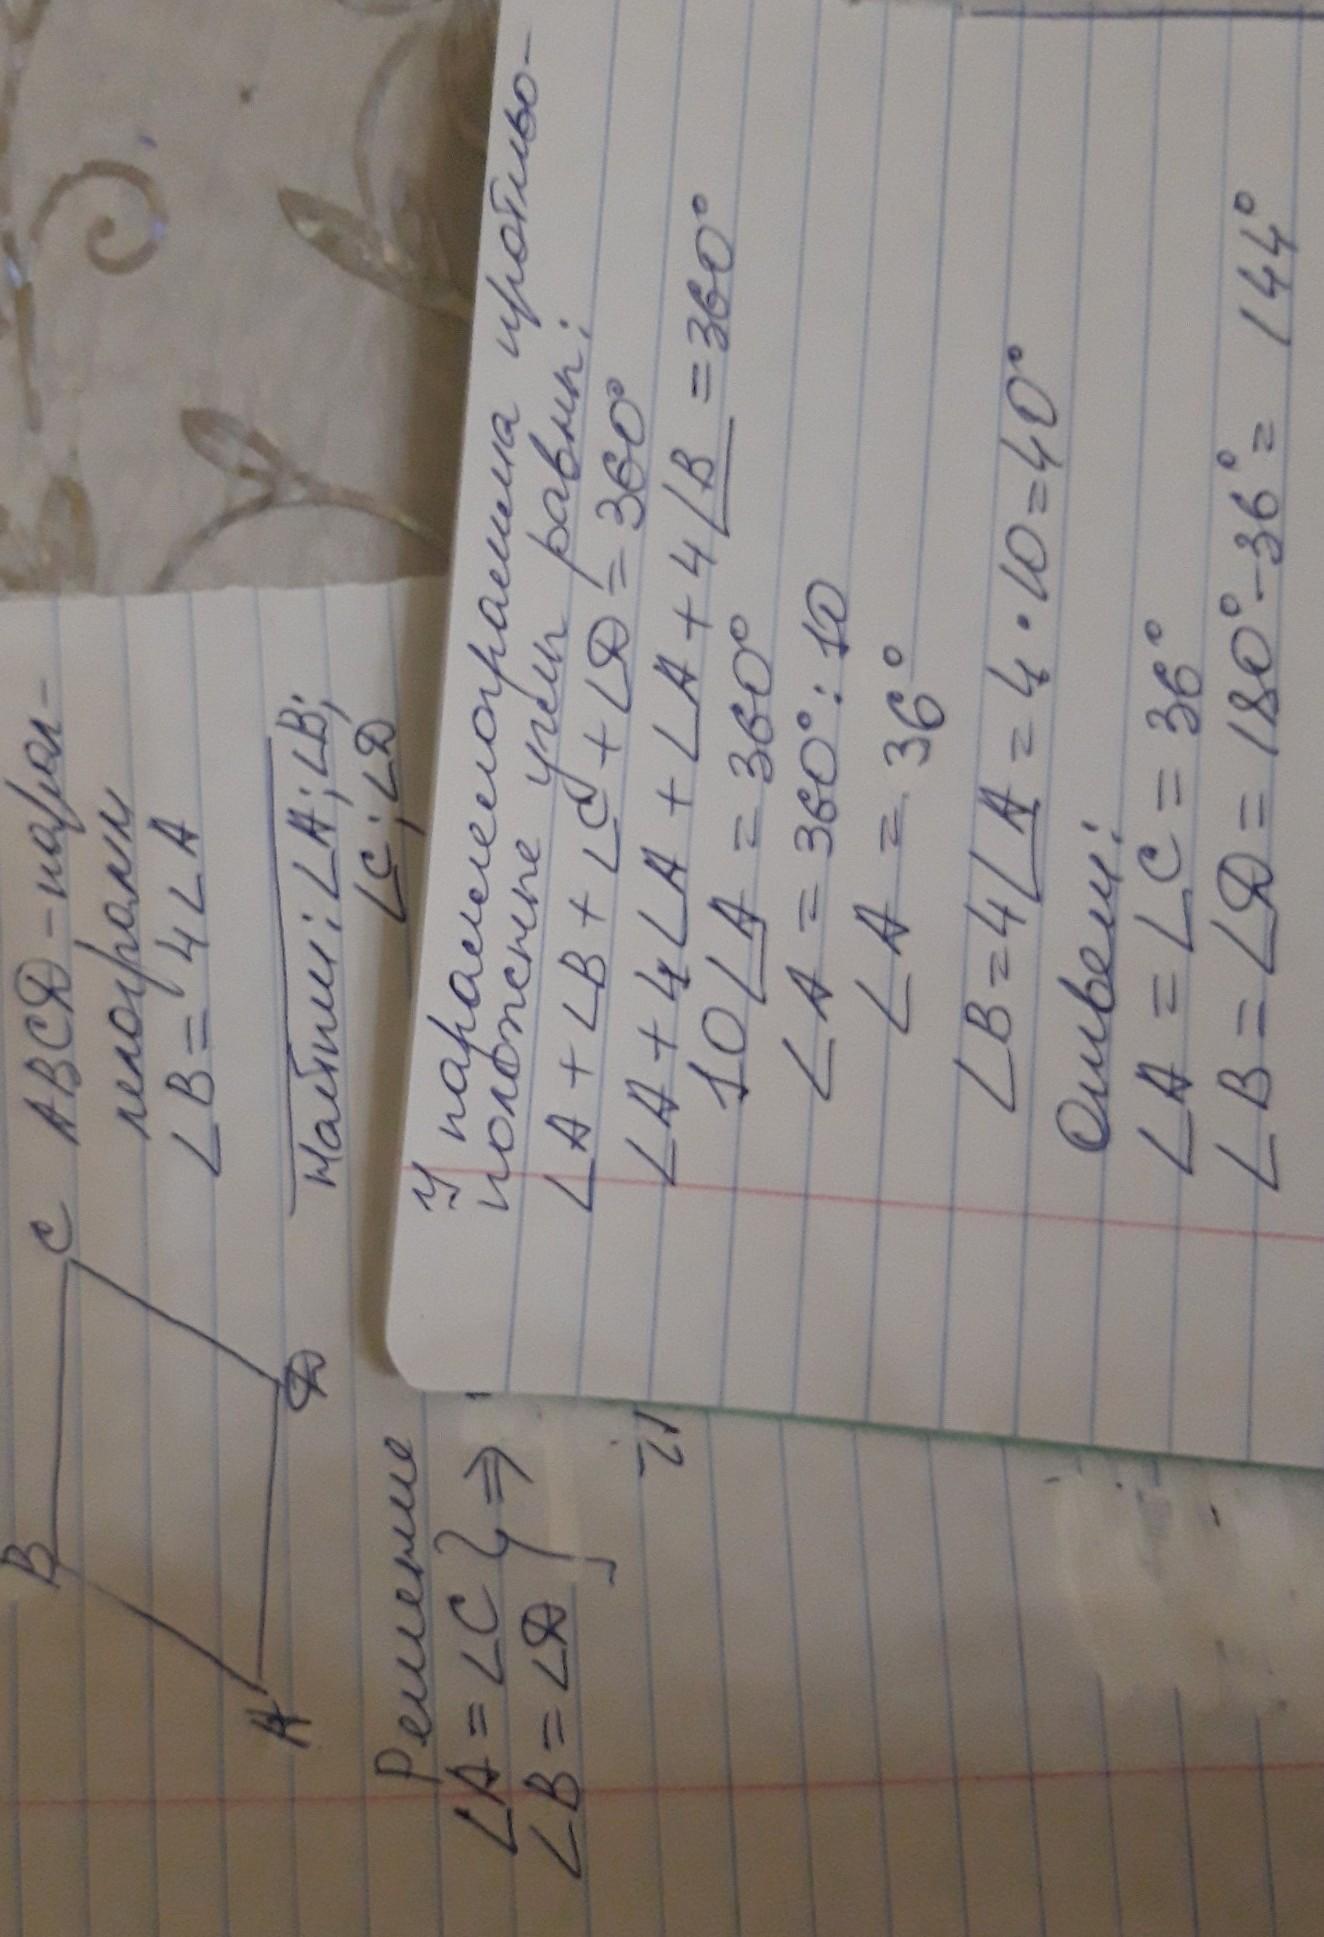 B
C
A
D
ABCD - парал-
лелограмм
∠B = 4∠A
Найти: ∠A; ∠B;
∠C; ∠D
Решение
∠A = ∠C } ⇒
∠B = ∠D
У параллелограмма противо-
положные углы равны:
∠A + ∠B + ∠C + ∠D = 360°
∠A + 4∠A + ∠A + 4∠B = 360°
10∠A = 360°
∠A = 360° : 10
∠A = 36°
∠B = 4∠A = 4 · 10 = 40°
Ответ:
∠A = ∠C = 36°
∠B = ∠D = 180° - 36° = 144°